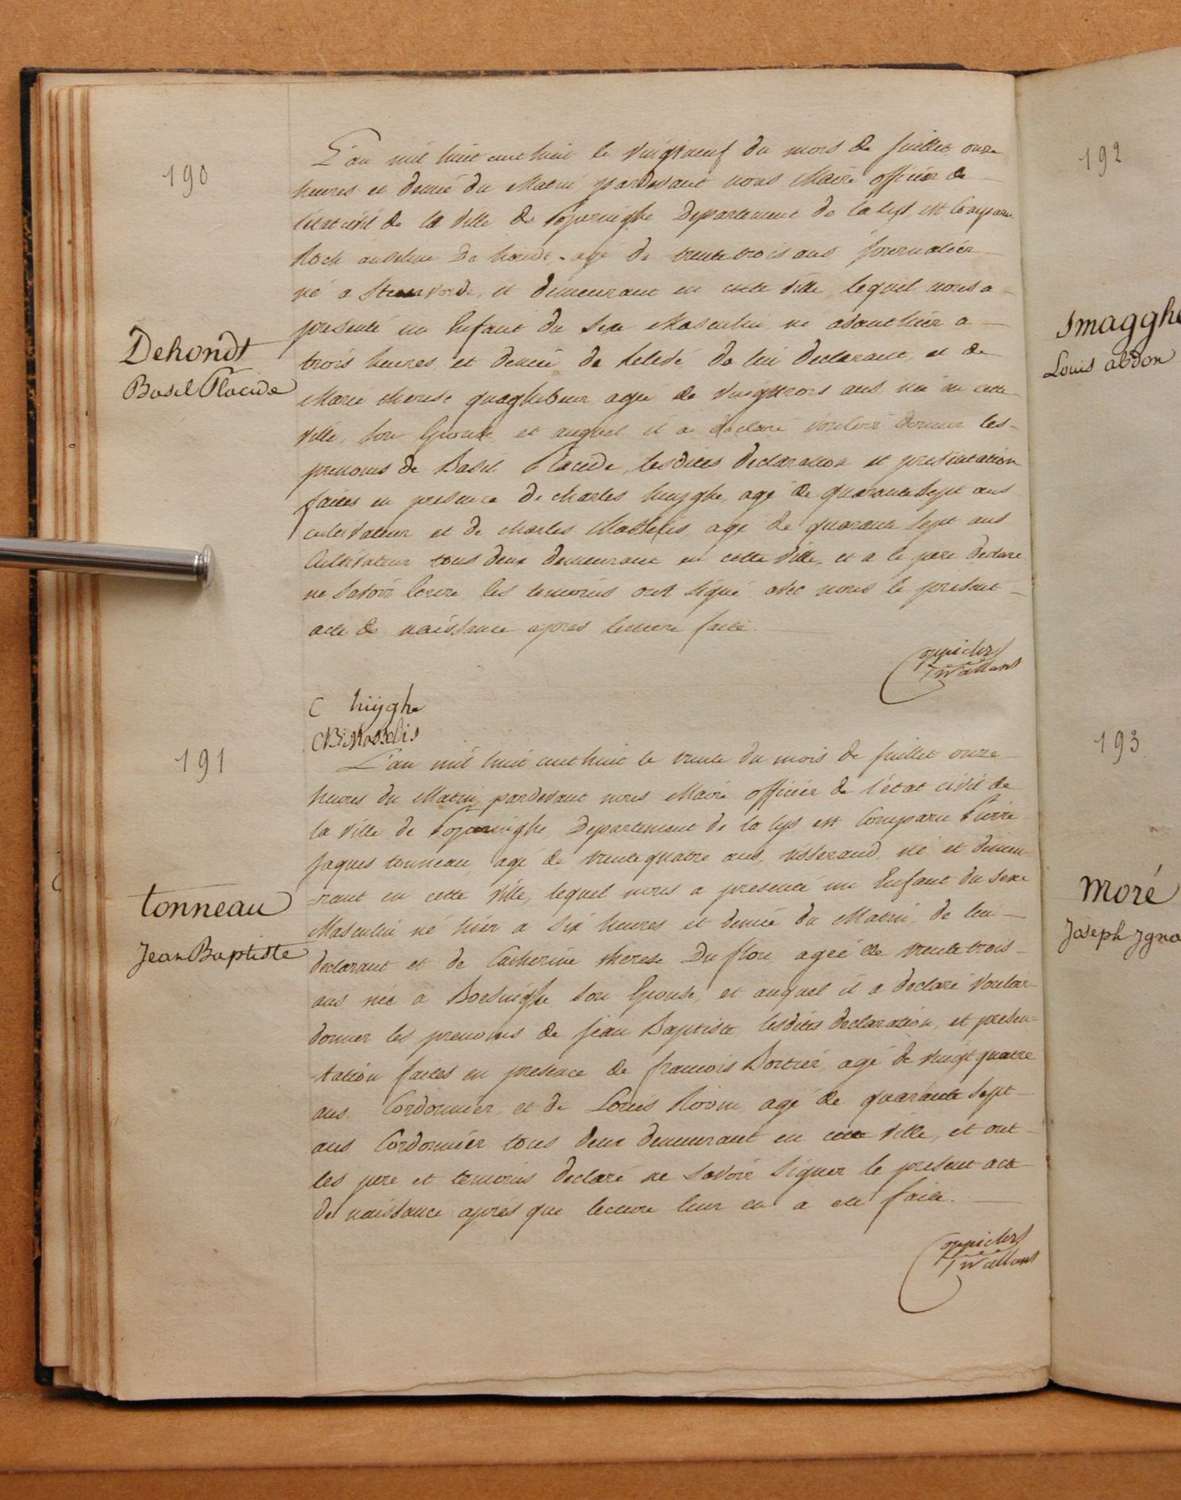 190
Dehondt
Basil Placide
L'an mil huit cent huit le vingtneuf du mois de Juillet onze
heures et demie du Matin pardevant nous Maire officier de
l'etat civil de la Ville de Poperinghe Departement de la Lys est Comparu
Roch anselme De hondt agé de trente trois ans Journalier
né a Steenvorde, et demeurant en cette Ville, lequel nous a
presenté un Enfant du Sexe Masculin né avant hier a
trois heures et demie de relevé de lui declarant, et de
Marie therese quaghebeur agee de vingttrois ans née en cette
ville, son Epouse, et auquel il a declaré vouloir donner les
prenoms de Basil Placide, lesdites declaration et presentation
faites en presence de charles huyghe, agé de quarantesept ans
cultivateur et de charles Masselis, agé de quarante sept ans
Cultivateur tous deux demeurant en cette ville, et a le pere declaré
ne savoir ecrire les temoins ont signé avec nous le present
acte de naissance apres lecture faite.
C hüyghe
CB Masselis
191
tonneau
Jean Baptiste
L'an mil huit cent huit le trente du mois de Juillet onze
heures du Matin pardevant nous Maire officier de l'état civil de
la Ville de Poperinghe, Departement de la Lys est Comparu Pierre
Jaques tonneau, agé de trentequatre ans, tisserand, né et demeu-
rant en cette Ville, lequel nous a presenté un Enfant du sexe
Masculin né hier a six heures et demie du Matin de lui
declarant et de Catherine therese Duflou agée de trente trois
ans née à Boesinghe son Epouse, et auquel il a declaré vouloir
donner les prenoms de jean Baptiste lesdites declaration, et presen-
tation faites en presence de francois Bortier, agé de vingtquatre
ans Cordonnier et de Louis agé de quarante sept
ans Cordonnier tous deux demeurant en cette Ville, et ont
les pere et temoins declaré ne savoir signer le present acte
de naissance après que lecture leur en a eté faite.
192
Imagghe
Louis abdon
193
Moré
Joseph Igna